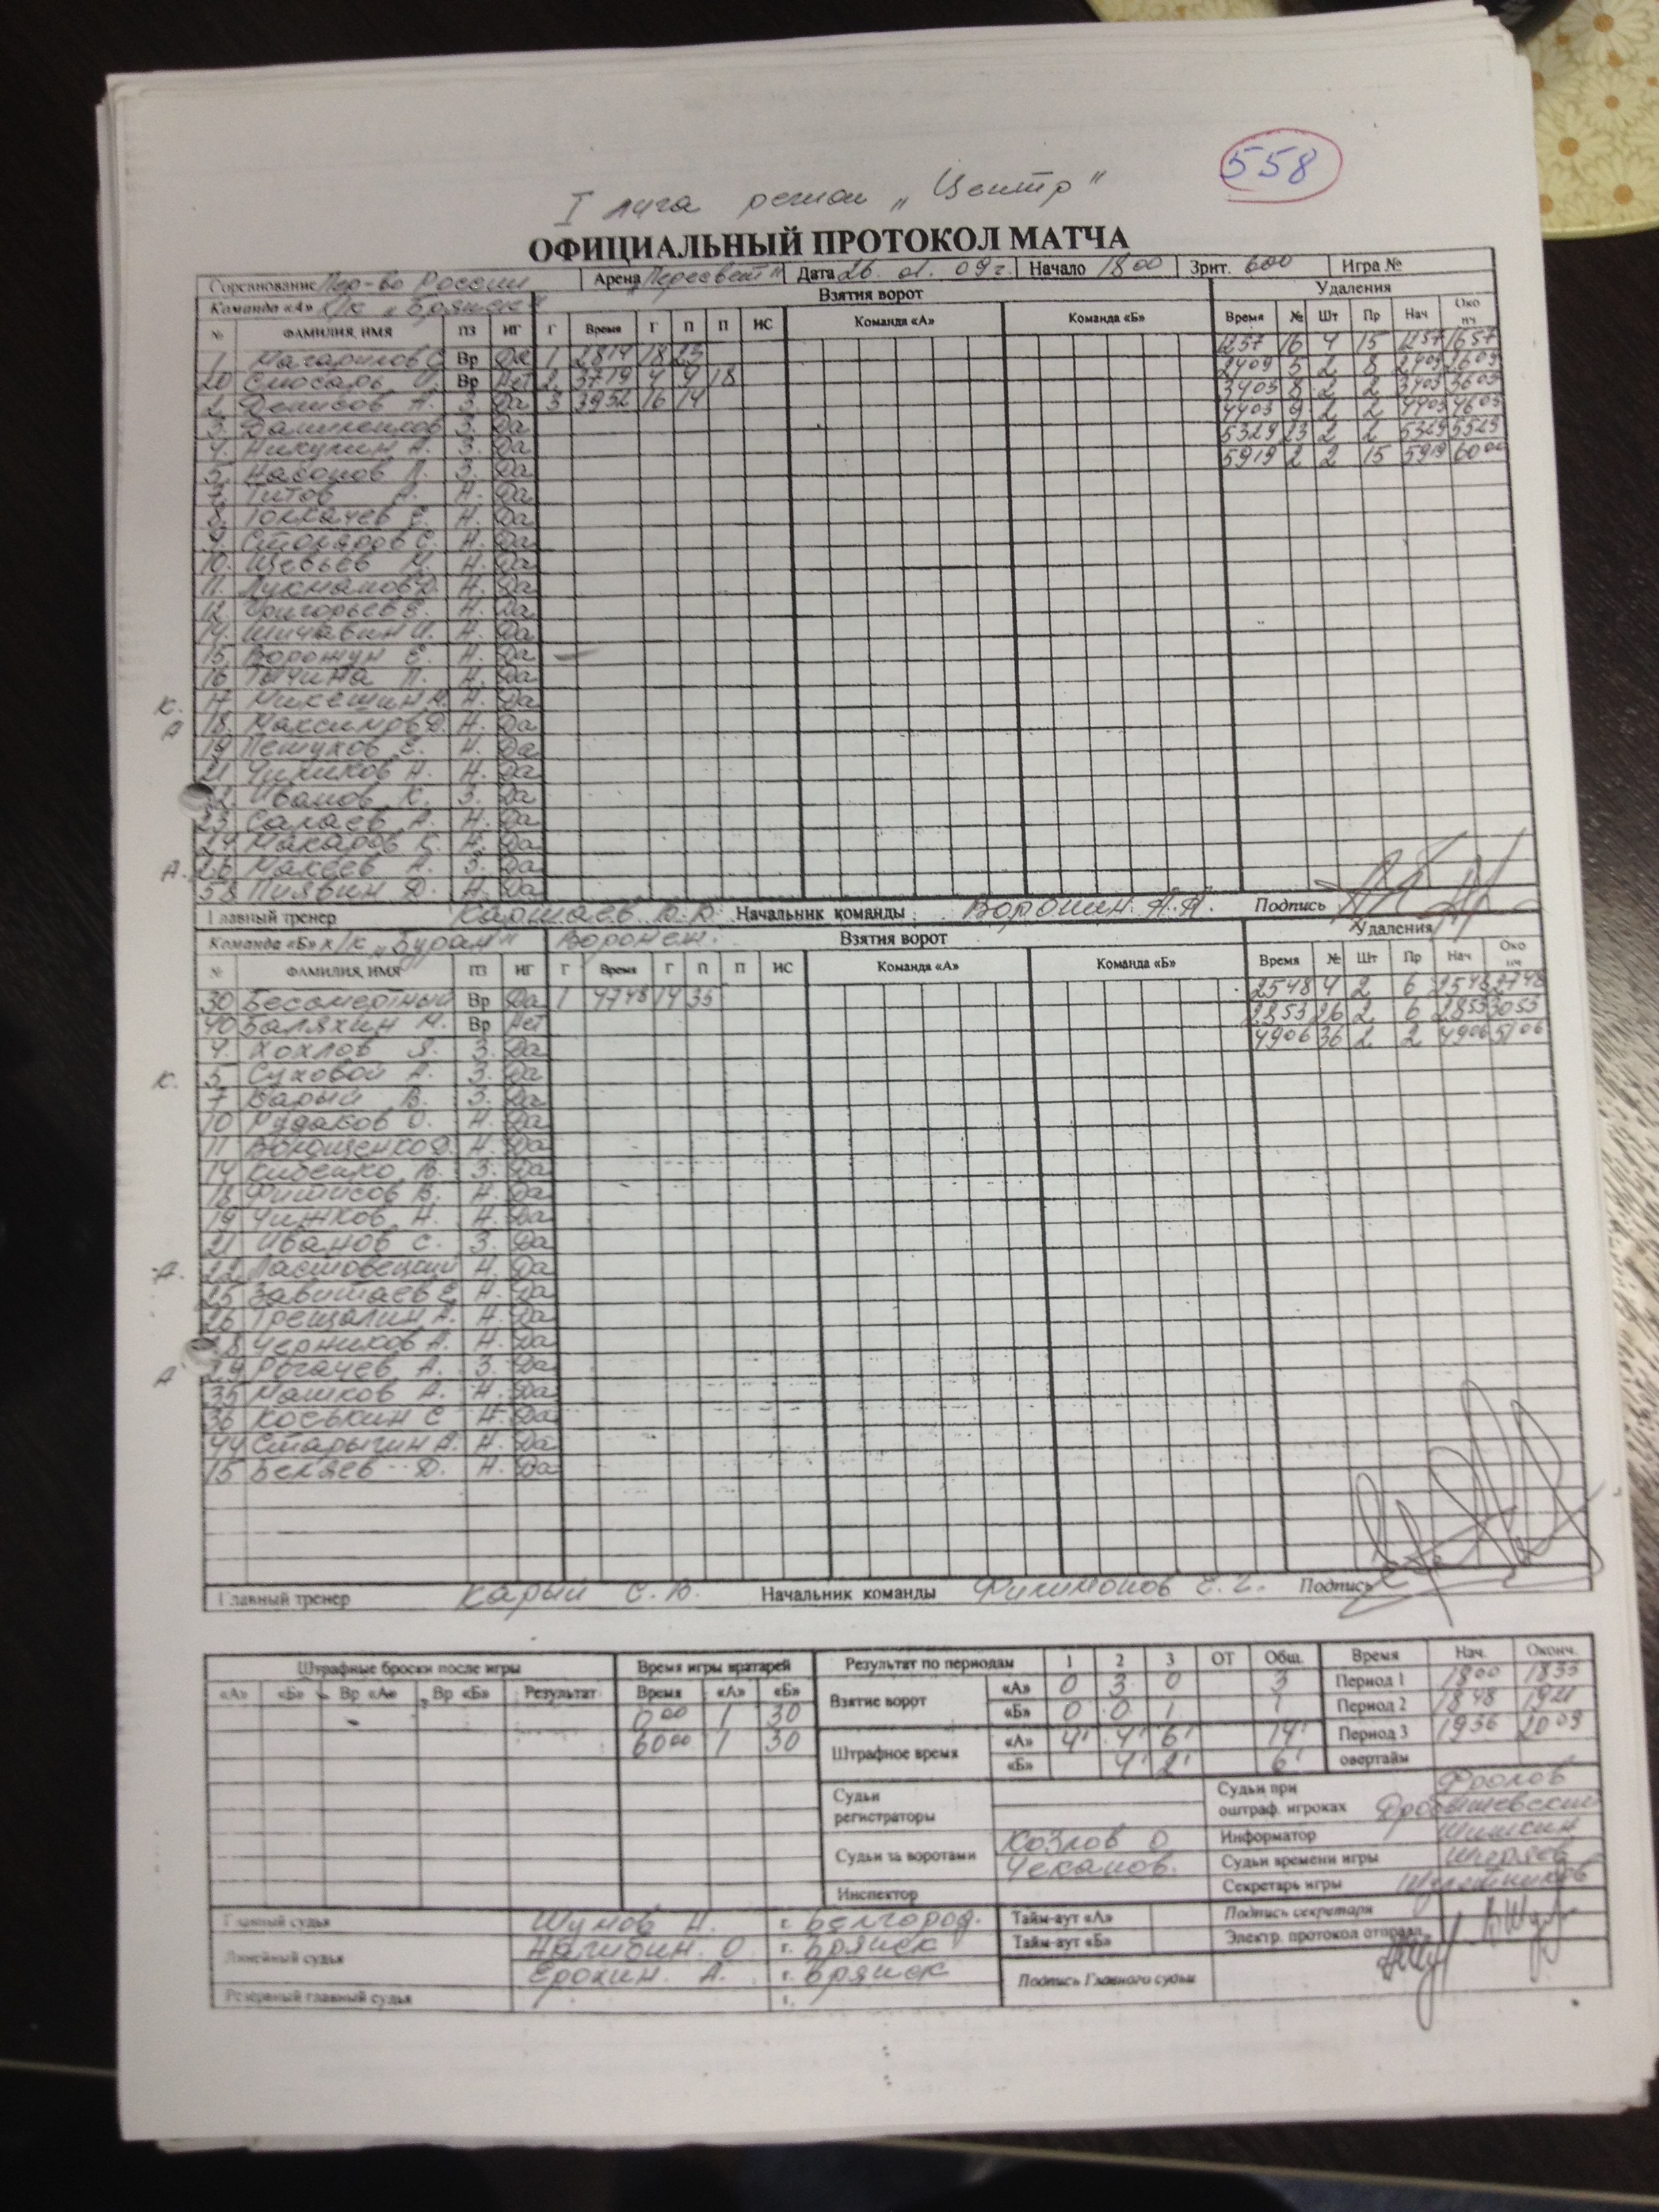 558
I лига регион „Центр"
ОФИЦИАЛЬНЫЙ ПРОТОКОЛ МАТЧА
Соревнование Пер-во России Арена „Пересвет" Дата 26. 01. 09 г. Начало 18 00 Зрит. 600 Игра №
Команда «А» х/к „Брянск" Взятия ворот Удаления
№ ФАМИЛИЯ, ИМЯ ПЗ ИГ Г Время Г П П ИС Команда «А» Команда «Б» Время № Шт Пр Нач Око нч
1 Магарилов С Вр Да 1 2814 18 23 1257 16 4 15 1257 1657
20 Слюсарь Вр Нет 2 3719 4 9 18 2409 5 2 8 2409 2609
2. Денисов А. З. Да 3 3952 16 14 3403 8 2 2 3403 3603
3. Даниленков З. Да 4403 9 2 2 4403 4603
4. Никулин А. З. Да 5329 23 2 2 5329 5529
5. Насонов З. Да 5919 2 2 15 5919 6000
7. Титов А. Н. Да
8. Толкачев Е. Н. Да
9. С. Н. Да
10. Н. Да
11. Лукманов Д. Н. Да
12. Григорьев Е. Н. Да
14. Шичавин И. Н. Да
15 Ворожун Е. Н. Да
16 Тычина П. Н. Да
К. 17 Микешин Н. Да
А 18. Максимов Д. Н. Да
19 Петухов Е. Н. Да
21 Чуликов Н. Н. Да
22. Иванов К. З. Да
23 Сараев А. Н. Да
24 Макаров К. Н. Да
А. 26 Макеев А. З. Да
58 Пиявин Д. Н. Да
Главный тренер Каршаев В. В. Начальник команды Воронин А.А. Подпись
Команда «Б» х/к „Буран" Воронеж. Взятия ворот Удаления
№ ФАМИЛИЯ, ИМЯ ПЗ ИГ Г Время Г П П ИС Команда «А» Команда «Б» Время № Шт Пр Нач Око нч
30 Бессмертный Вр Да 1 4748 14 35 2548 4 2 6 2548 2748
40 Баляхин М. Вр Нет 2853 26 2 6 2853 3053
4. Хохлов Я. З. Да 4906 36 2 2 4906 5106
К. 5 Суховой А. З. Да
7 Карый В. З. Да
10 Рудаков О. Н. Да
11 Ворощенко Д. Н. Да
14 Кибенко В. З. Да
18 В. Н. Да
19 Чижков Н. Н. Да
21 Иванов С. З. Да
А. 22 Ластовецкий Н. Да
25 Завитаев Е. Н. Да
26 Трещалин А. Н. Да
28 Черников А. Н. Да
А 29 Рогачев А. З. Да
35 Машков А. Н. Да
36 Коськин С Н. Да
44 Старыгин А. Н. Да
15 Беляев Д. Н. Да
Главный тренер Карый С. В. Начальник команды Филимонов Е. Г. Подпись
Штрафные броски после игры Время игры вратарей Результат по периодам 1 2 3 ОТ Общ. Время Нач. Оконч.
«А» «Б» Вр «А» Вр «Б» Результат Время «А» «Б» Взятие ворот «А» 0 3 0 3 Период 1 1800 1833
0 00 1 30 «Б» 0 0 1 1 Период 2 1848 1921
60 00 1 30 Штрафное время «А» 4' 4' 6' 14' Период 3 1936 2009
«Б» 4' 2' 6' овертайм
Судьи регистраторы Судьи при оштраф. игроках Фролов
Дробышевский
Судьи за воротами Козлов О Информатор Шишкин
Чеканов. Судьи времени игры
Инспектор Секретарь игры
Главный судья Шумов Н. г. Белгород. Тайм-аут «А» Подпись секретаря
Линейный судья Нагибин О г. Брянск Тайм-аут «Б» Электр. протокол отправл.
Ерохин А. г. Брянск Подпись Главного судьи
Резервный главный судья г.